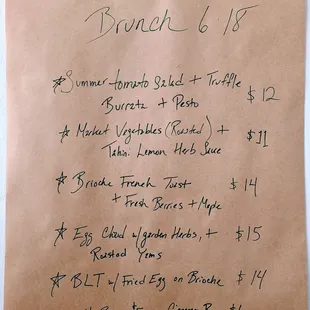 Brunch 6.18
* Summer tomato Salad + Truffle
Burrata + Pesto $12
* Market Vegetables (Roasted) +
Tahin. Lemon Herb Sauce $11
* Brioche French Toast $14
+ Fresh Berries + Maple
* Egg w/ garden Herbs, + $15
Roasted Yams
* BLT w/ Fried Egg on Brioche $14